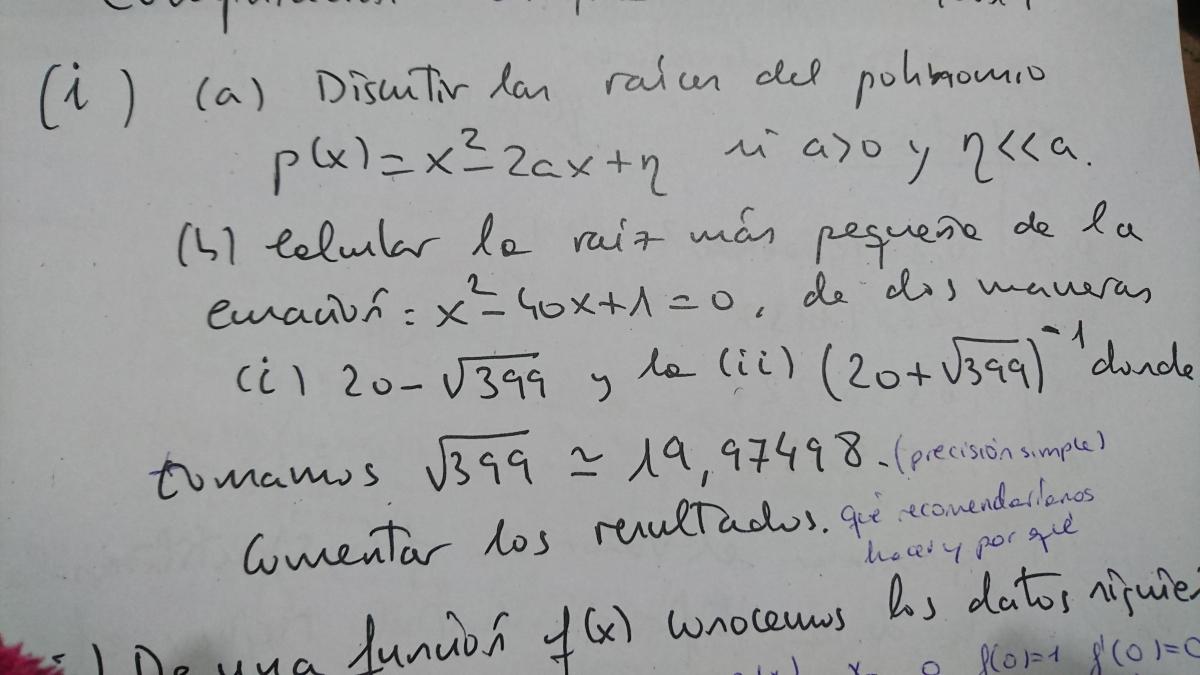 (i) (a) Discutir las raíces del polinomio
p(x) = x² - 2ax + η si a>0 y η<<a.
(b) Calcular la raíz más pequeña de la
ecuación: x² - 40x + 1 = 0, de dos maneras
(i) 20 - √399 y la (ii) (20 + √399)⁻¹ donde
tomamos √399 ≃ 19,97498. (precisión simple)
Comentar los resultados. Qué recomendaríamos
hacer y por qué
De una función f(x) conocemos los datos
f(0)=1 f'(0)=0